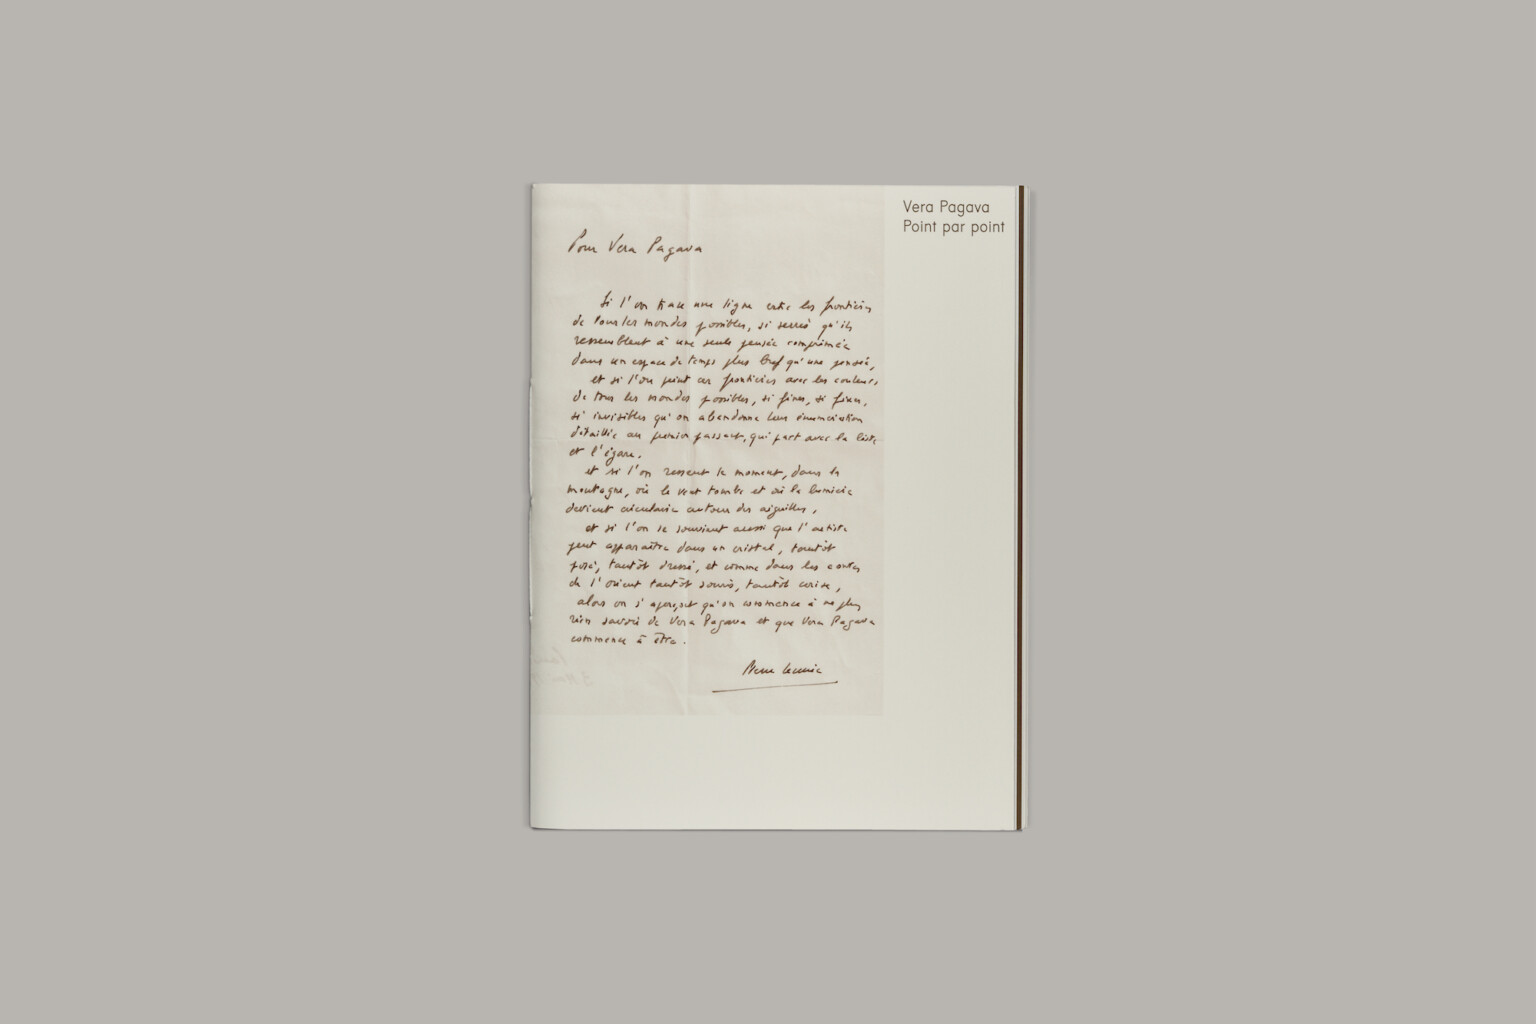 Vera Pagava
Point par point
Pour Vera Pagava
Si l'on trace une ligne entre les frontières
de tous les mondes possibles, si serrés qu'ils
ressemblent à une seule pensée comprimée
dans un espace de temps plus bref qu'une pensée,
et si l'on peint ces frontières avec les couleurs
de tous les mondes possibles, si fines, si fixes,
si invisibles qu'on abandonne leur énumération
détaillée au premier passant, qui part avec la liste
et l'égare.
et si l'on ressent le moment, dans la
montagne, où le vent tombe et où la lumière
devient circulaire autour des aiguilles,
et si l'on se souvient aussi que l'artiste
peut apparaître dans un cristal, tantôt
posé, tantôt dressé, et comme dans les contes
de l'orient tantôt souris, tantôt cerise,
alors on s'aperçoit qu'on commence à ne plus
rien savoir de Vera Pagava et que Vera Pagava
commence à être.